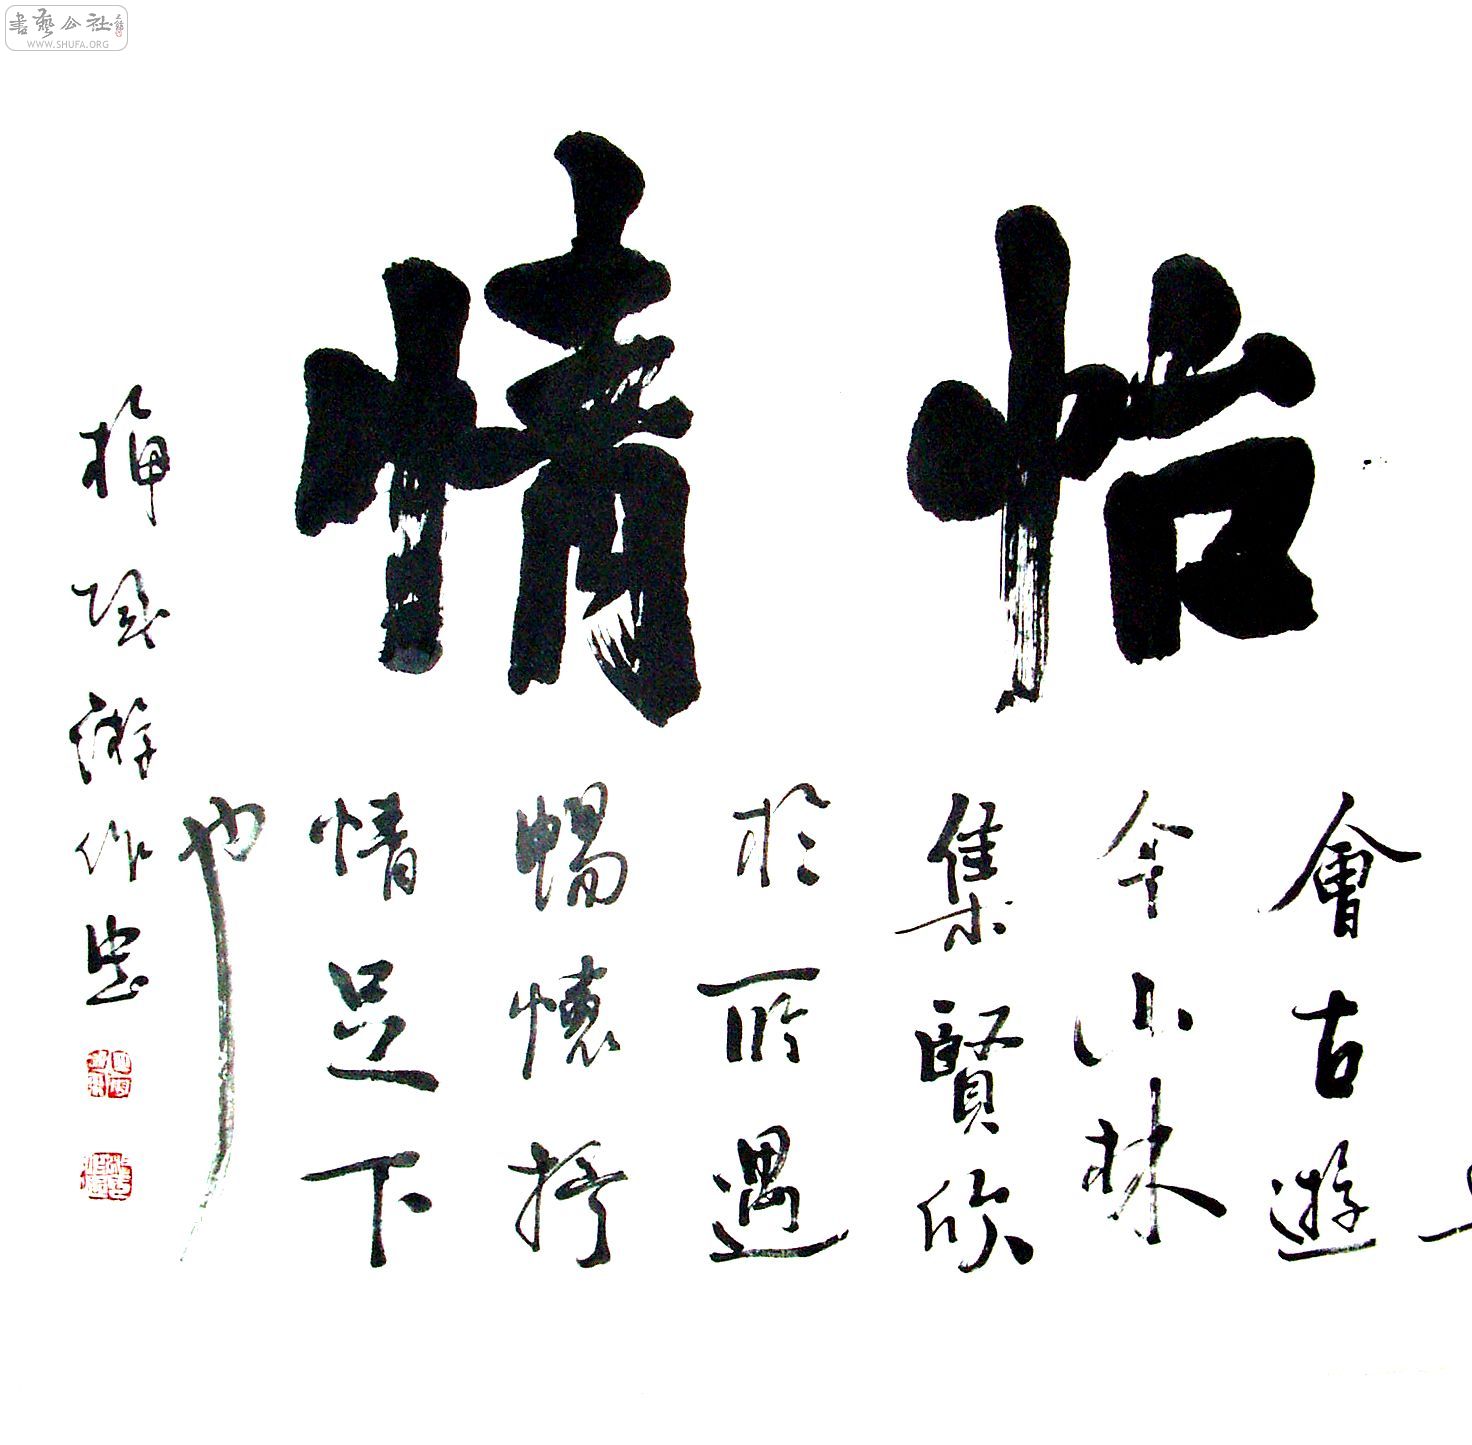 書藝公社
WWW.SHUFA.ORG
怡情
會古遊
今山林
集賢欣
於所遇
暢懷抒
情足下
也
游作忠